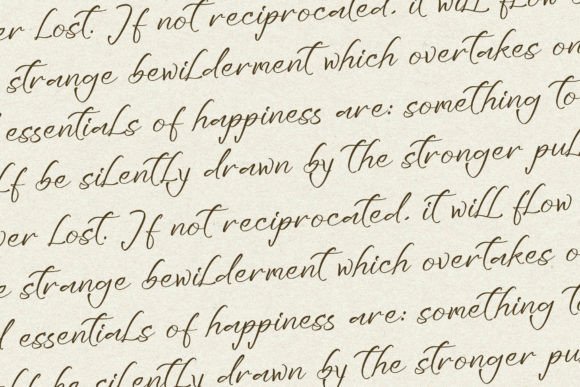 er lost. If not reciprocated, it will flow
strange bewilderment which overtakes on
essentials of happiness are: something to
lf be silently drawn by the stronger pull
ver lost. If not reciprocated, it will flow
e strange bewilderment which overtakes o
l essentials of happiness are: something t
elf be silently drawn by the stronger pu